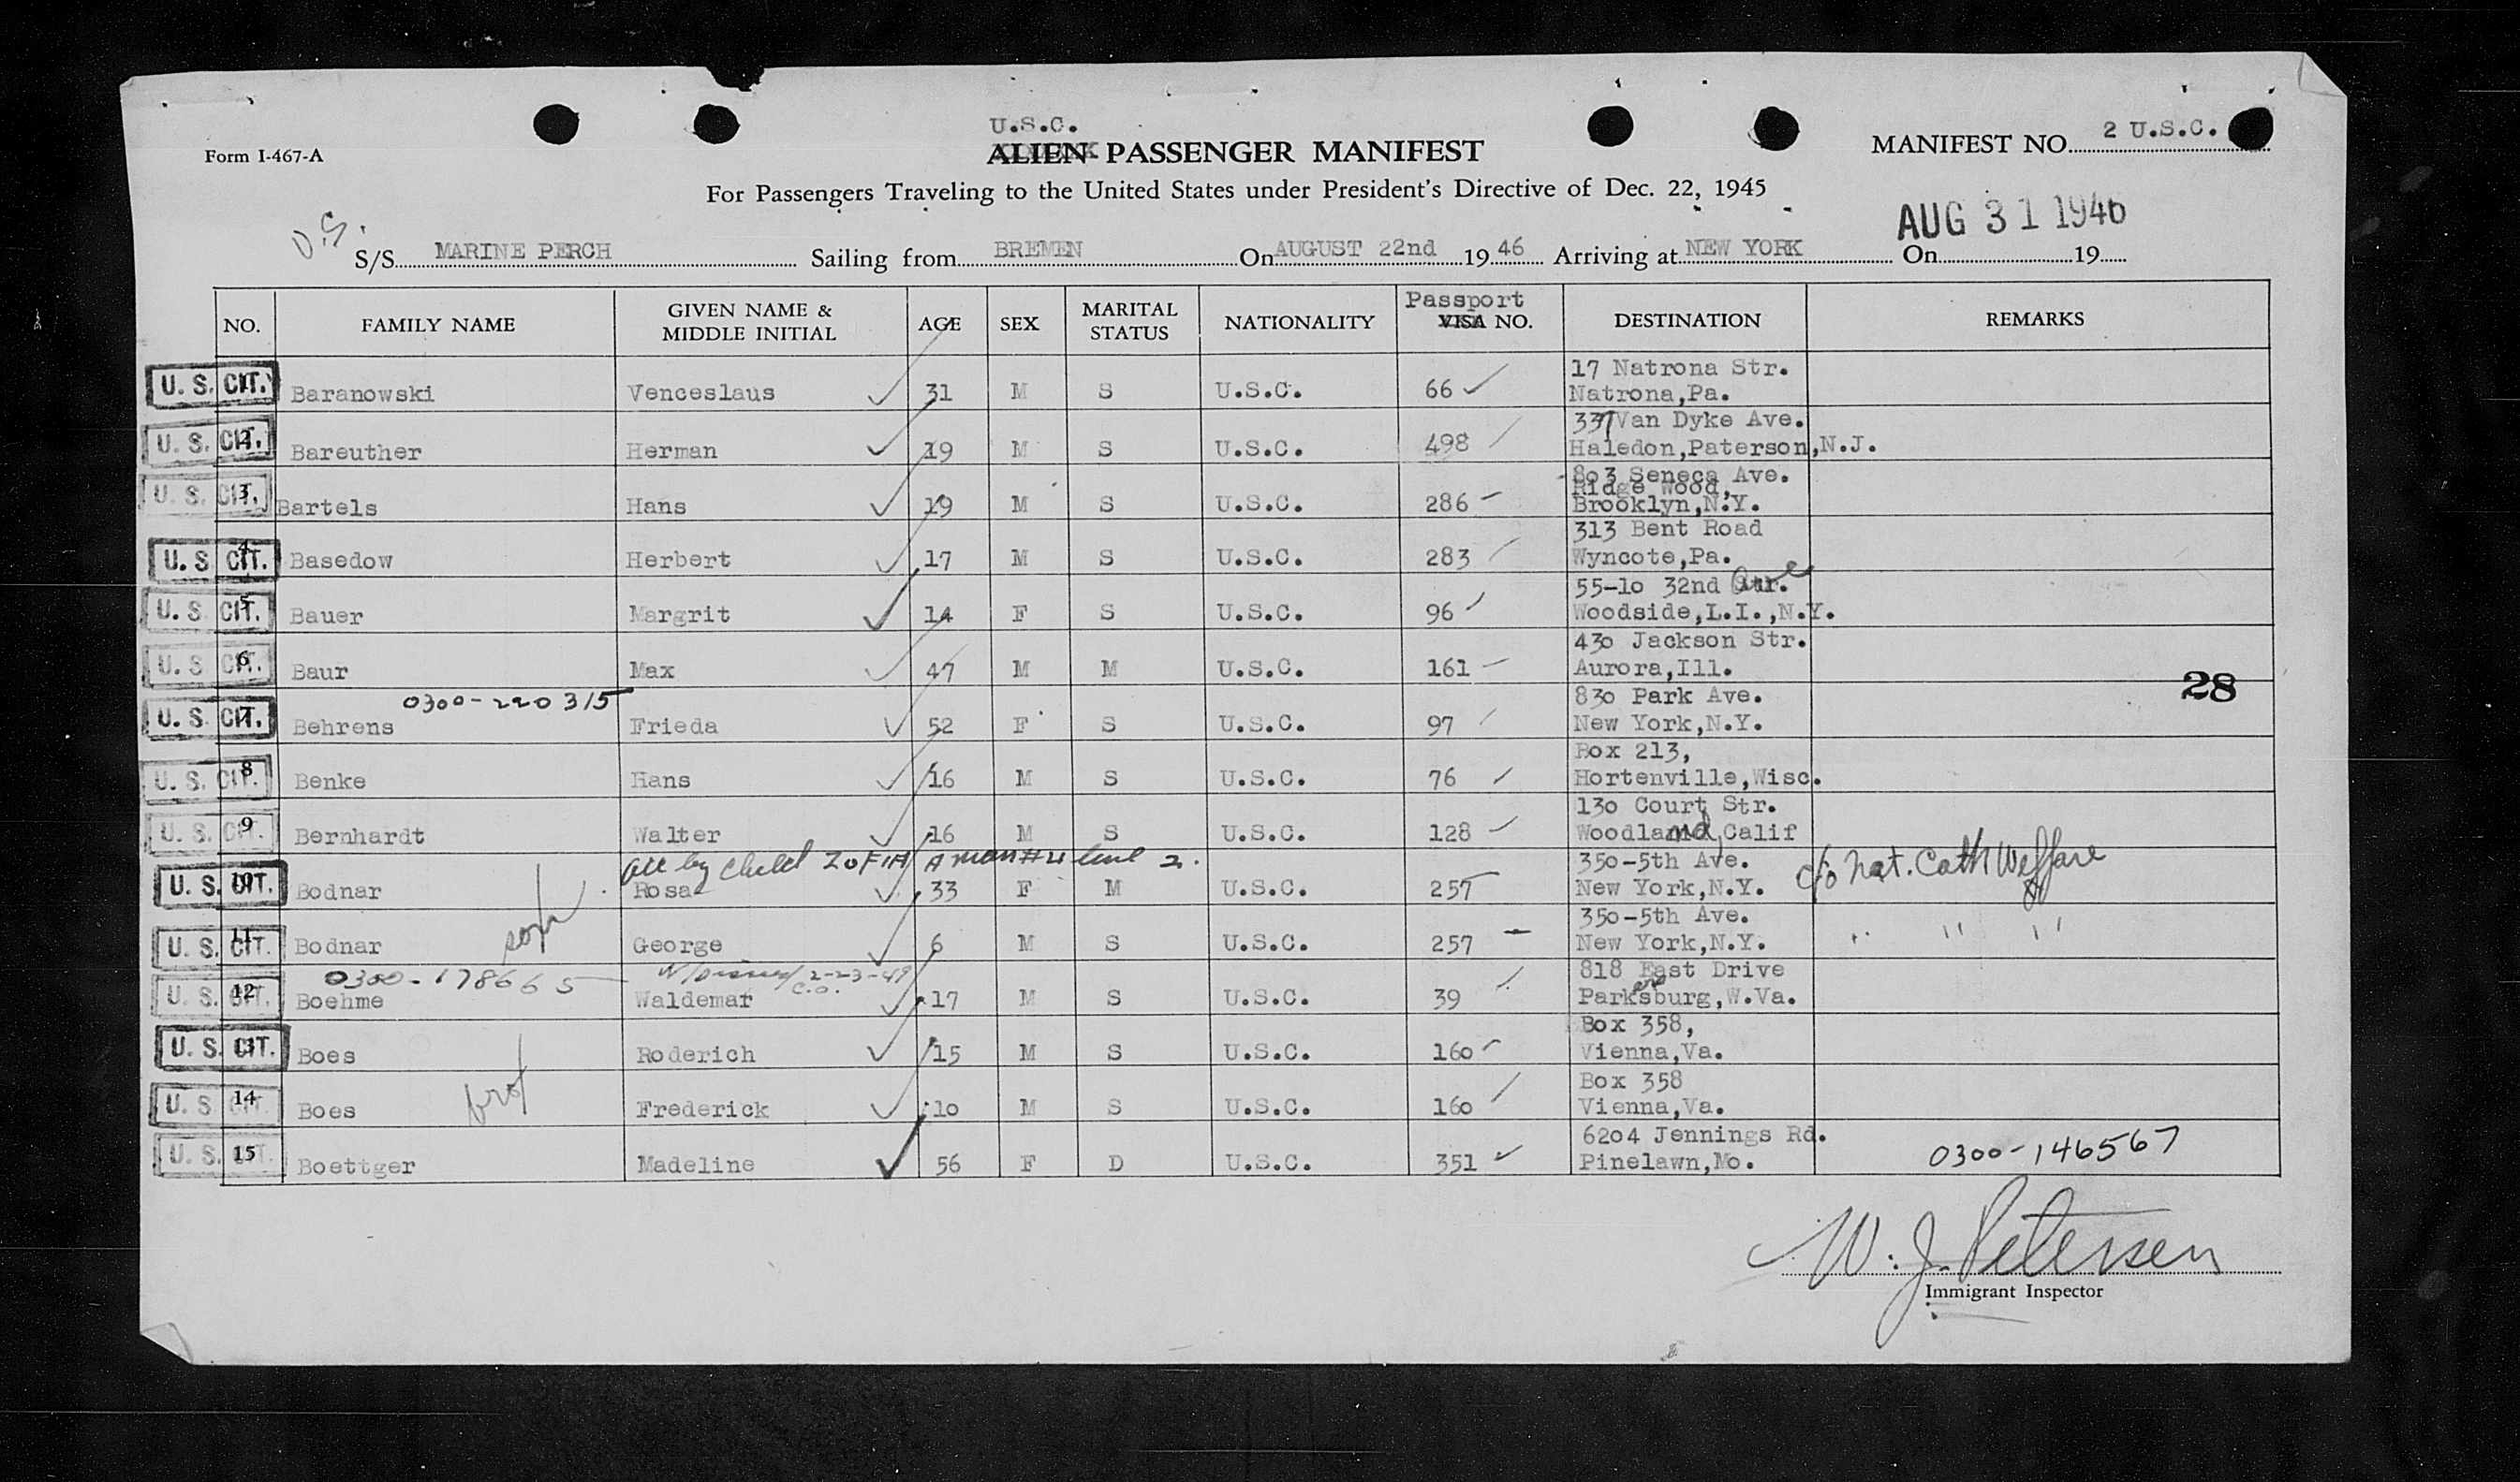 U.S.C.
Form I-467-A
ALIEN PASSENGER MANIFEST
MANIFEST NO. 2 U.S.C.
For Passengers Traveling to the United States under President's Directive of Dec. 22, 1945
AUG 31 1946
S/S MARINE PERCH Sailing from BREMEN On AUGUST 22nd 19 46 Arriving at NEW YORK On 19
NO. FAMILY NAME GIVEN NAME & MIDDLE INITIAL AGE SEX MARITAL STATUS NATIONALITY Passport VISA NO. DESTINATION REMARKS
17 Natrona Str.
U. S. CIT. 1 Baranowski Venceslaus 31 M S U.S.C. 66 Natrona,Pa.
337 Van Dyke Ave.
U. S. CIT. 2 Bareuther Herman 19 M S U.S.C. 498 Haledon,Paterson,N.J.
803 Seneca Ave.
Ridge Wood,
U. S. CIT. 3 Bartels Hans 19 M S U.S.C. 286 Brooklyn,N.Y.
313 Bent Road
U. S. CIT. 4 Basedow Herbert 17 M S U.S.C. 283 Wyncote,Pa.
55-10 32nd Str. Ave
U. S. CIT. 5 Bauer Margrit 14 F S U.S.C. 96 Woodside,L.I.,N.Y.
430 Jackson Str.
U. S. CIT. 6 Baur Max 47 M M U.S.C. 161 Aurora,Ill.
28
0300-220315 830 Park Ave.
U. S. CIT. 7 Behrens Frieda 52 F S U.S.C. 97 New York,N.Y.
Box 213,
U. S. CIT. 8 Benke Hans 16 M S U.S.C. 76 Hortenville,Wisc.
130 Court Str.
U. S. CIT. 9 Bernhardt Walter 16 M S U.S.C. 128 Woodland,Calif
acc by child ZOFIA A man #4 line 2. 350-5th Ave.
U. S. CIT. 10 Bodnar Rosa 33 F M U.S.C. 257 New York,N.Y. c/o Nat. Cath Welfare
350-5th Ave.
U. S. CIT. 11 Bodnar George 6 M S U.S.C. 257 New York,N.Y. " " "
0300-178665 2-23-49 818 East Drive
C.O.
U. S. CIT. 12 Boehme Waldemar 17 M S U.S.C. 39 Parkersburg,W.Va.
Box 358,
U. S. CIT. 13 Boes Roderich 15 M S U.S.C. 160 Vienna,Va.
Box 358
U. S. CIT. 14 Boes Frederick 10 M S U.S.C. 160 Vienna,Va.
6204 Jennings Rd.
U. S. CIT. 15 Boettger Madeline 56 F D U.S.C. 351 Pinelawn,Mo. 0300-146567
W. J. Petersen
Immigrant Inspector